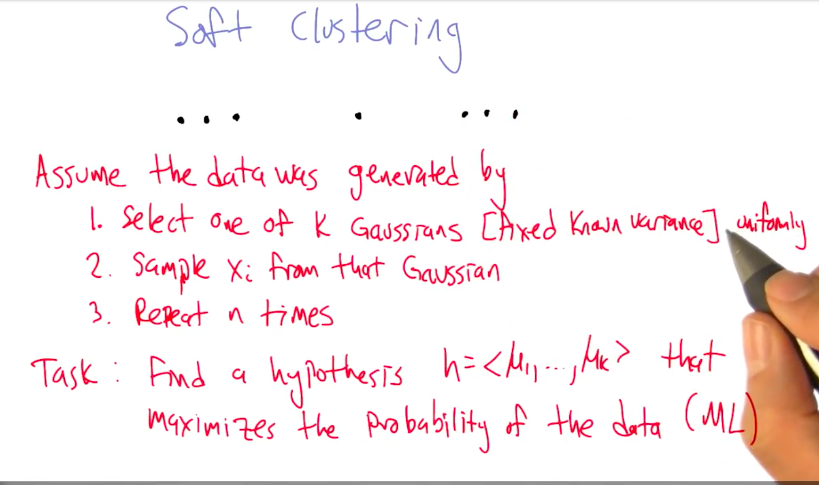 Soft Clustering
Assume the data was generated by
1. Select one of K Gaussians [Fixed Known variance] uniformly
2. Sample Xi from that Gaussian
3. Repeat n times
Task: Find a hypothesis h=<μ1,...,μk> that
maximizes the probability of the data (ML)